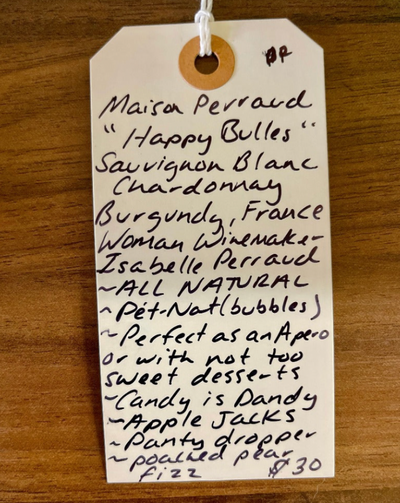 Maison Perraud
"Happy Bulles"
Sauvignon Blanc
Chardonnay
Burgundy, France
Woman Winemaker
Isabelle Perraud
~ALL NATURAL
~Pét-Nat(bubbles)
~Perfect as an Apero
or with not too
sweet desserts
~Candy is Dandy
~Apple Jacks
~Panty dropper
~poached pear
fizz $30